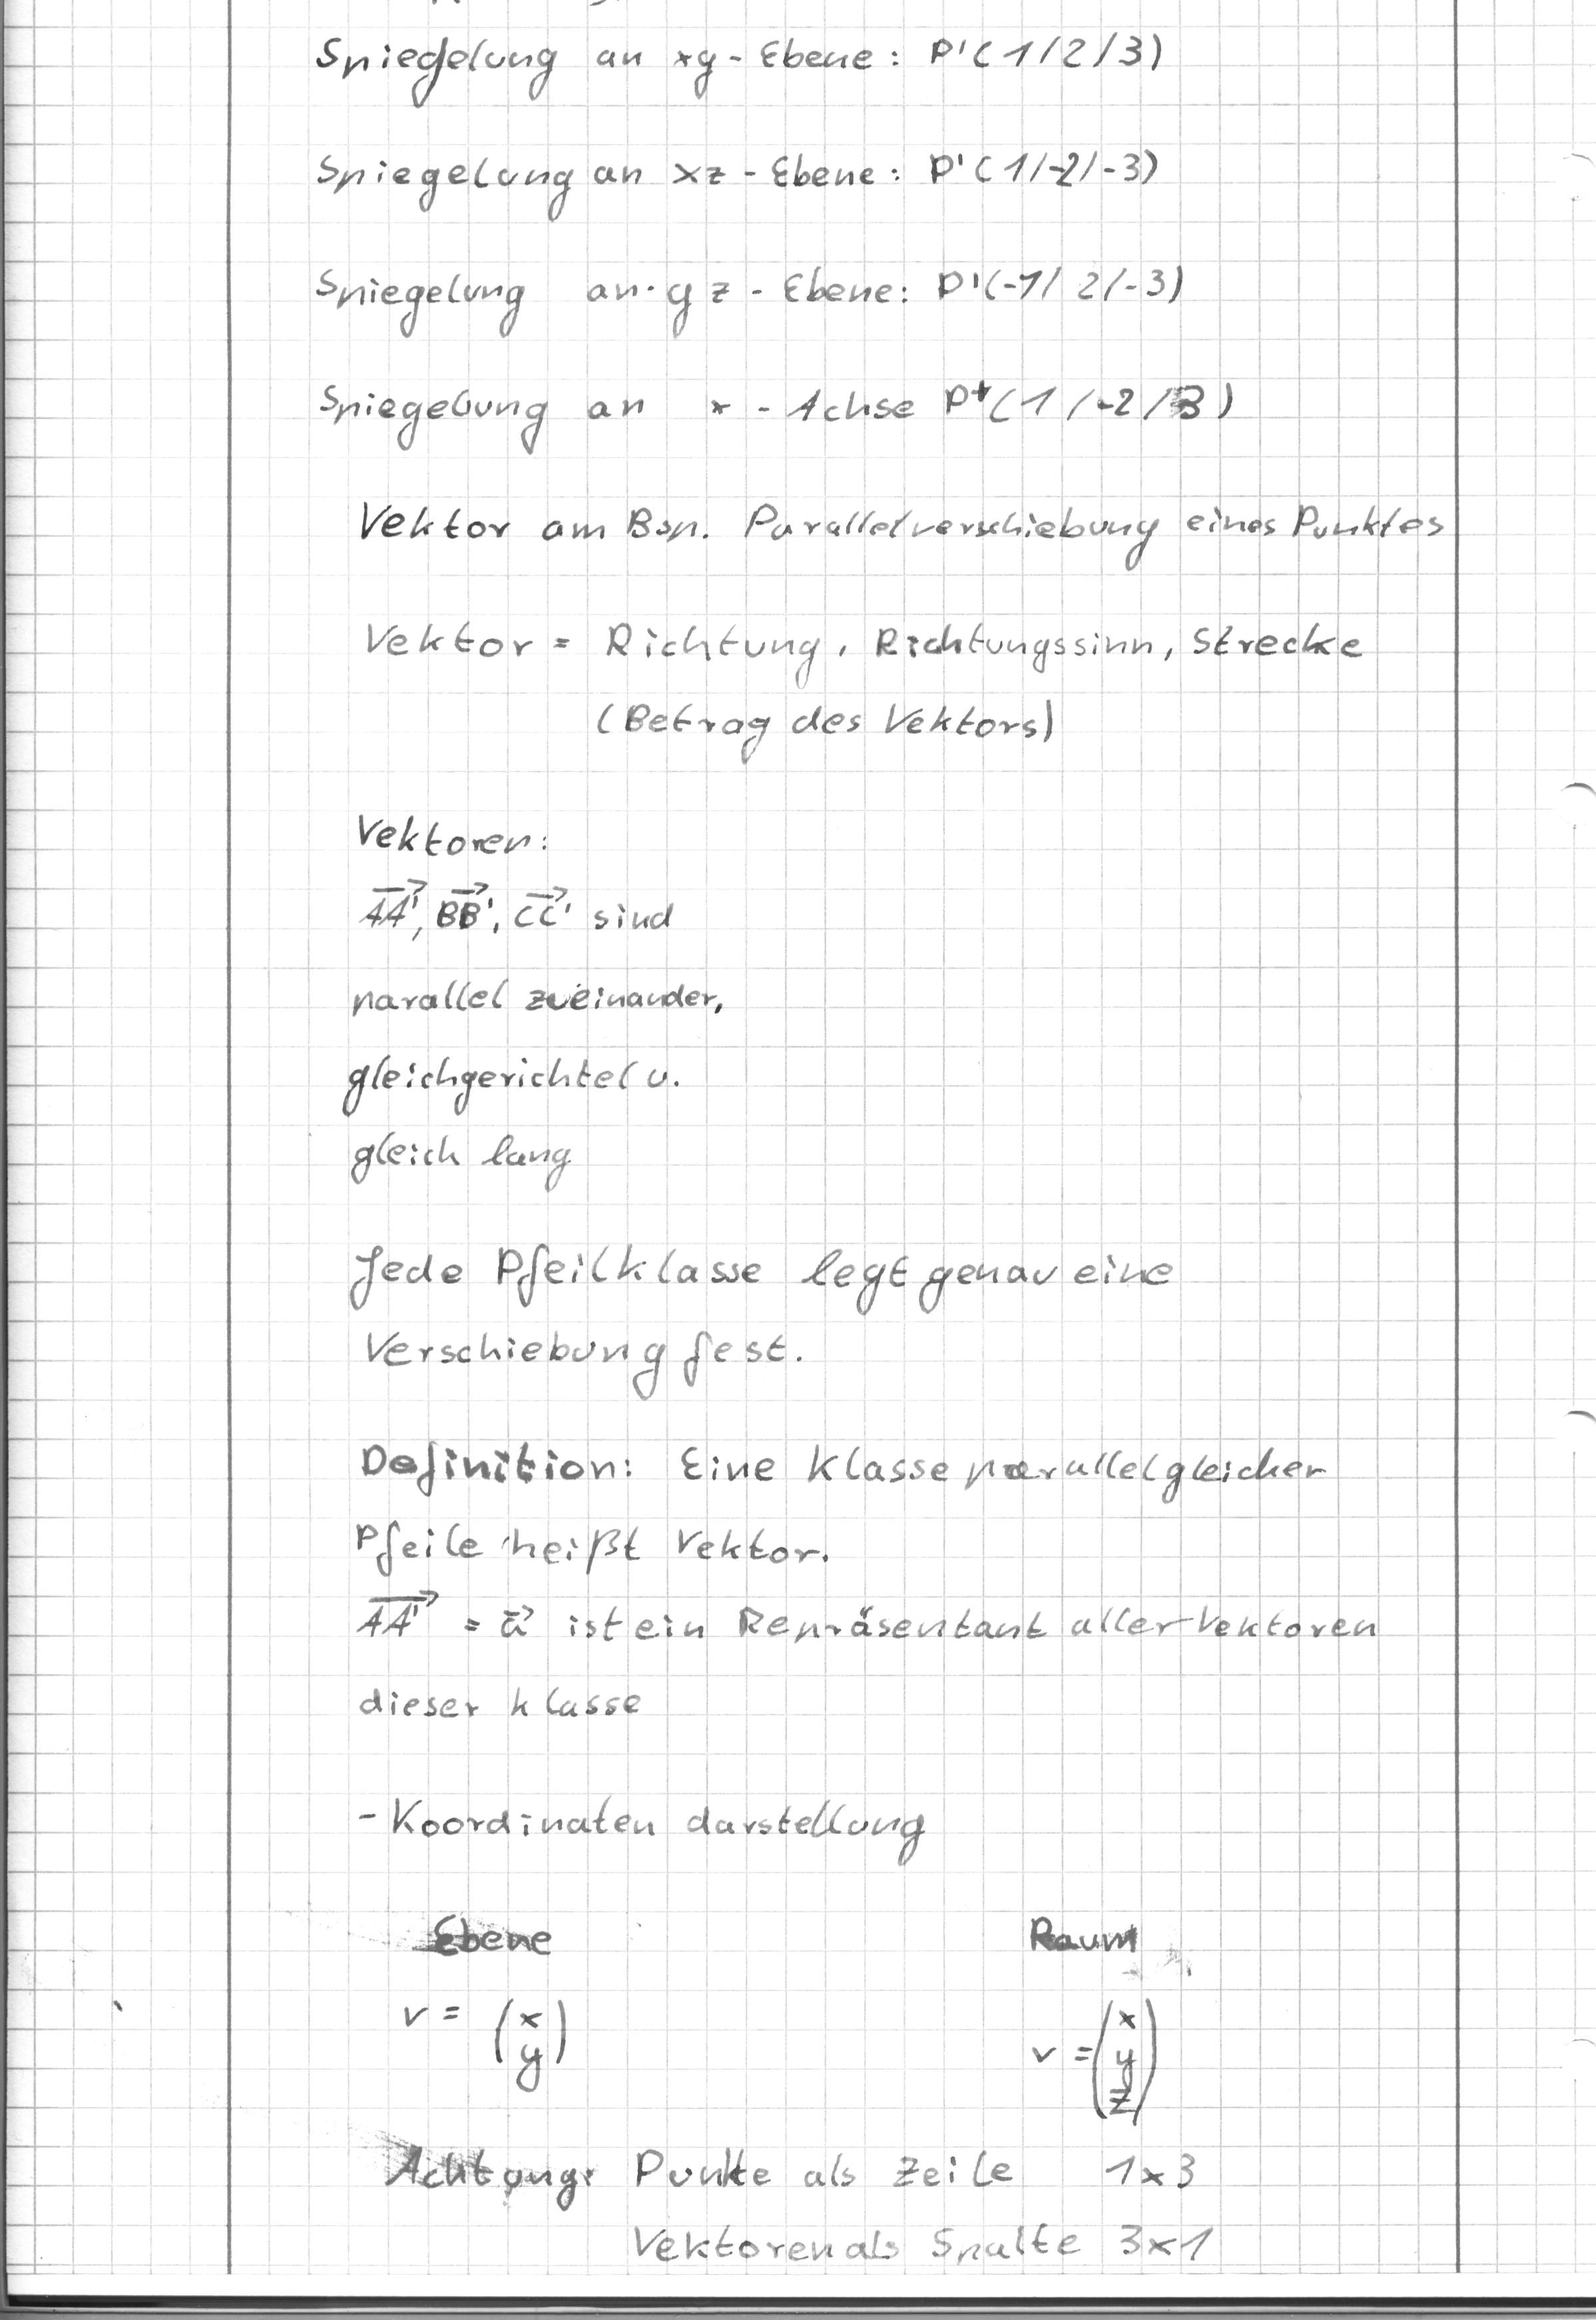 Spiegelung an xy-Ebene: P'(1/2/3)
Spiegelung an xz-Ebene: P'(1/-2/-3)
Spiegelung an yz-Ebene: P'(-1/2/-3)
Spiegelung an x-Achse P'(1/-2/3)
Vektor am Bsp. Parallelverschiebung eines Punktes
Vektor = Richtung, Richtungssinn, Strecke
(Betrag des Vektors)
Vektoren:
AA', BB', CC' sind
parallel zueinander,
gleichgerichtet u.
gleich lang
Jede Pfeilklasse legt genau eine
Verschiebung fest.
Definition: Eine Klasse parallelgleicher
Pfeile heißt Vektor.
AA' = a ist ein Repräsentant aller Vektoren
dieser Klasse
- Koordinatendarstellung
Ebene Raum
v = (x y) v = (x y z)
Achtung: Punkte als Zeile 1x3
Vektoren als Spalte 3x1